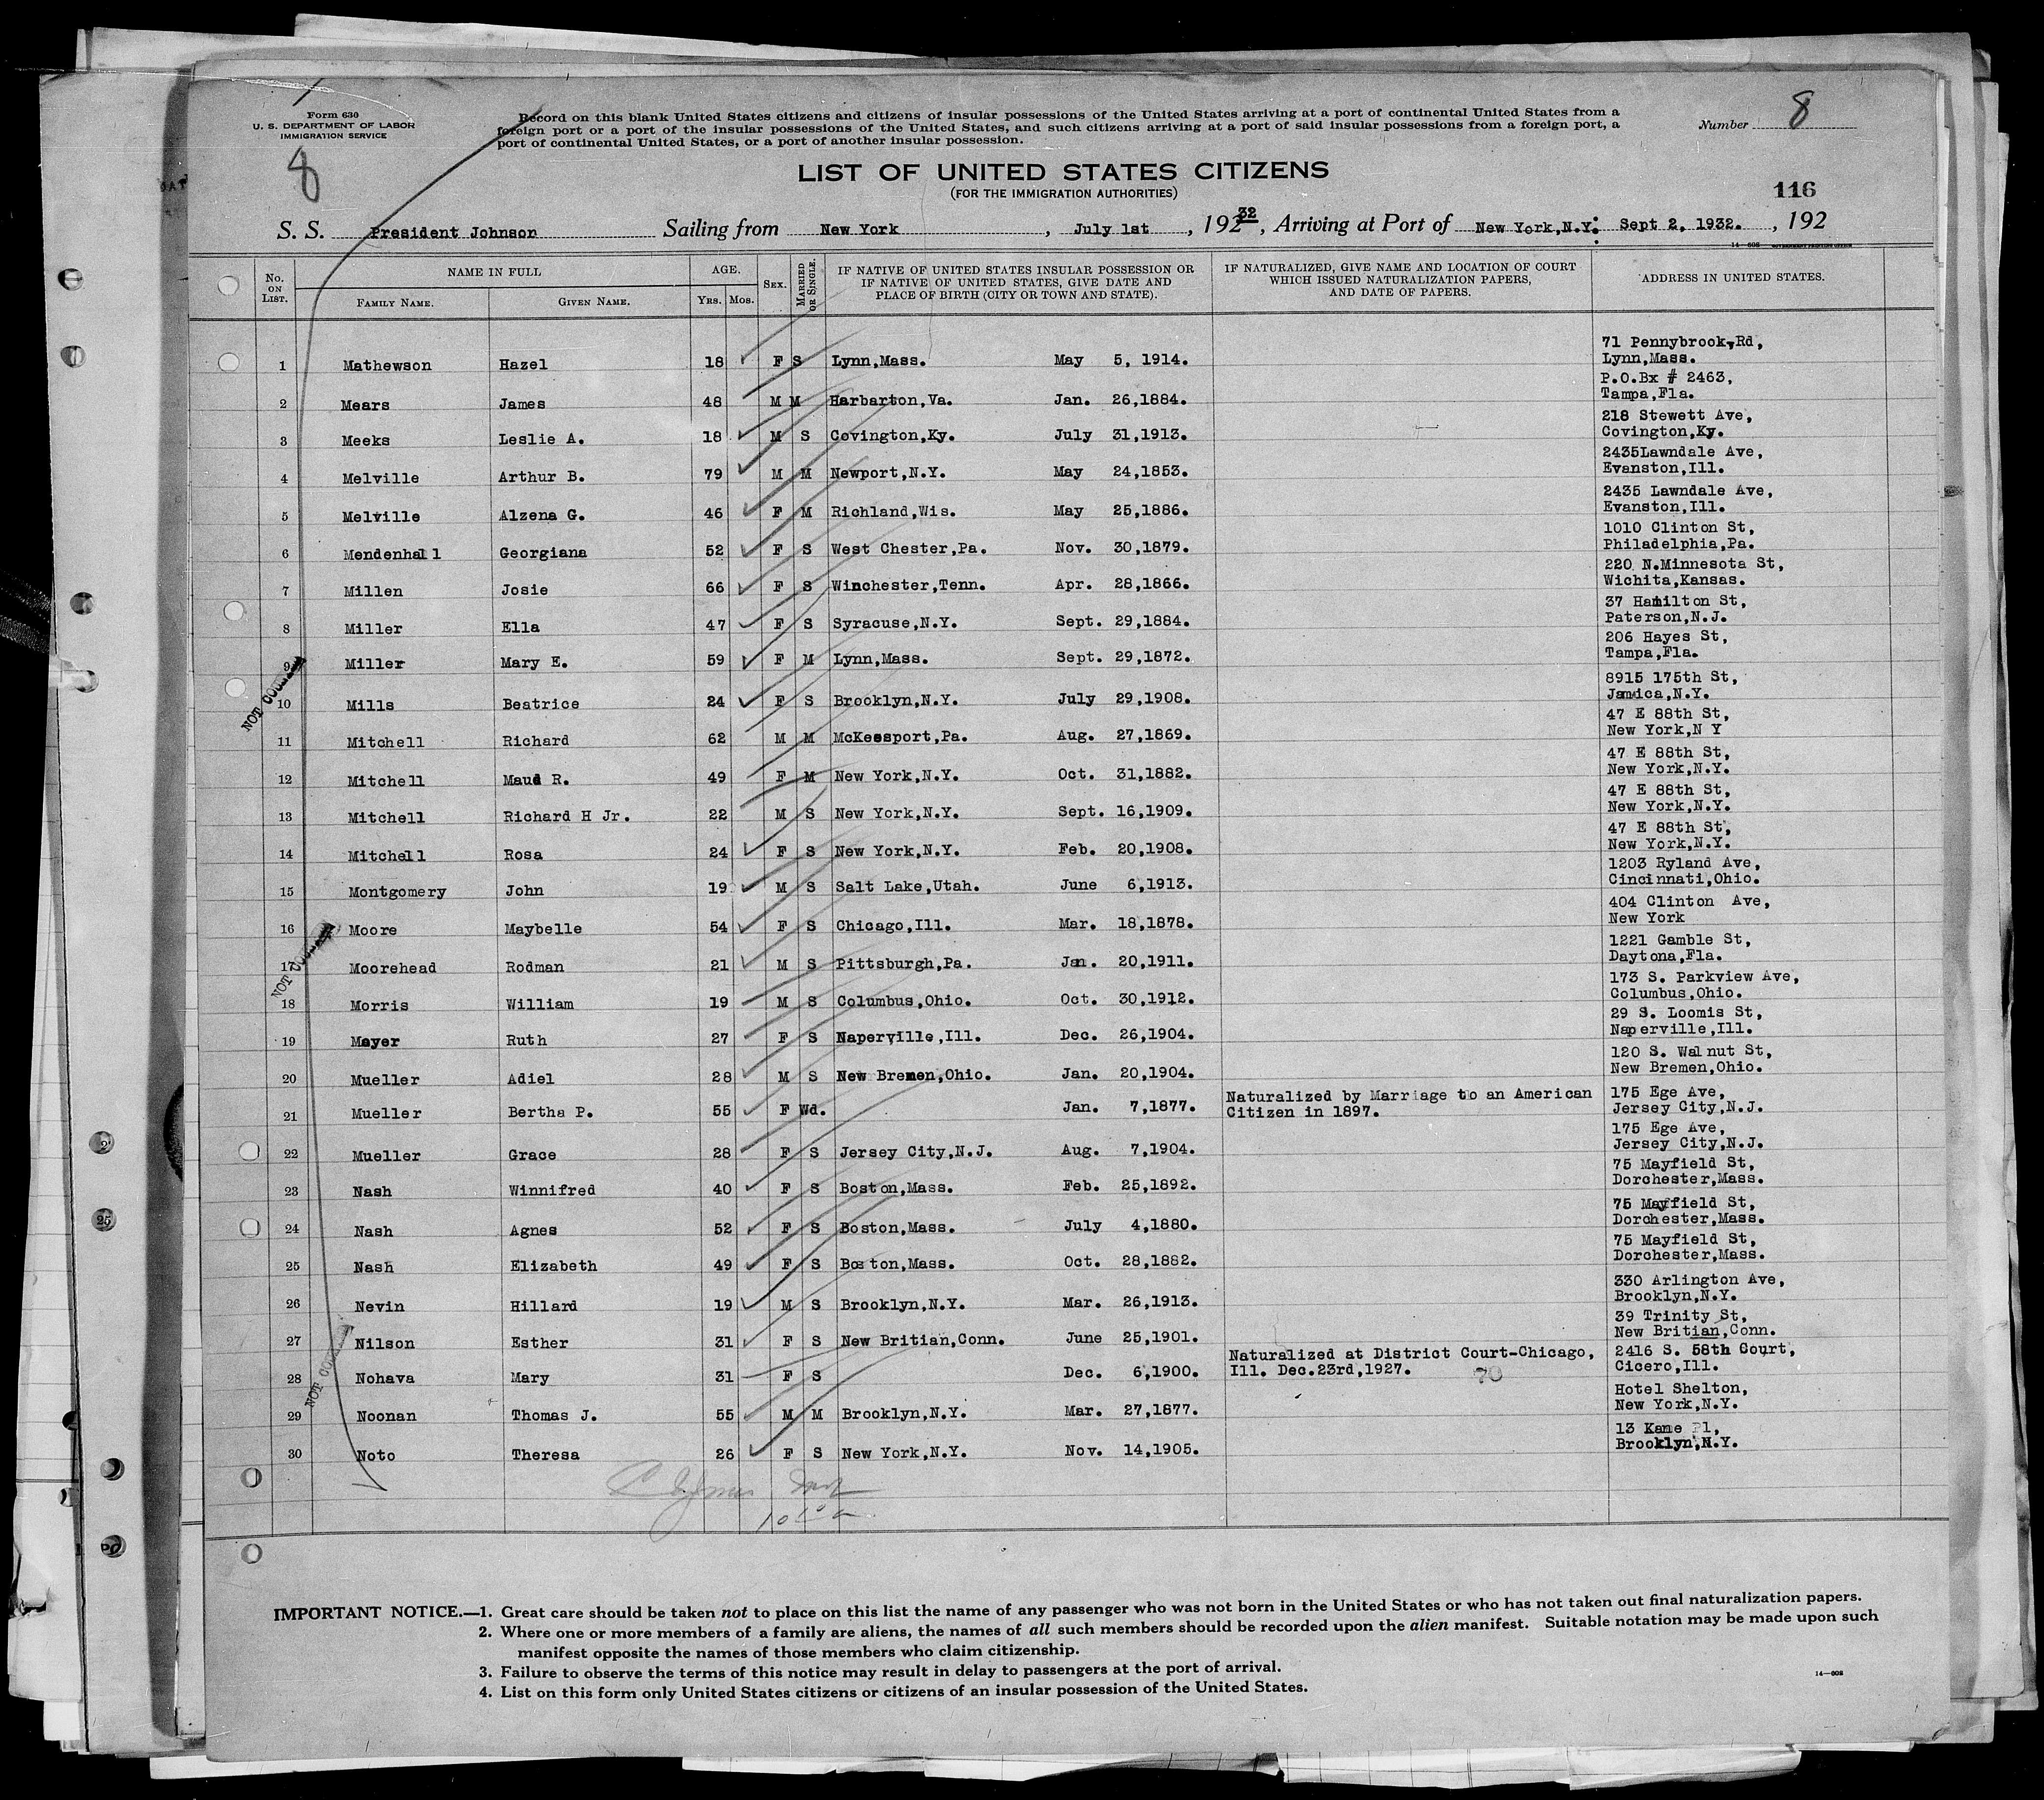 Form 630
U. S. DEPARTMENT OF LABOR
IMMIGRATION SERVICE
8
Record on this blank United States citizens and citizens of insular possessions of the United States arriving at a port of continental United States from a
foreign port or a port of the insular possessions of the United States, and such citizens arriving at a port of said insular possessions from a foreign port, a
port of continental United States, or a port of another insular possession.
Number 8
LIST OF UNITED STATES CITIZENS
(FOR THE IMMIGRATION AUTHORITIES)
116
S. S. President Johnson Sailing from New York, July 1st, 192 32, Arriving at Port of New York,N.Y: Sept 2, 1932., 192
14-608 GOVERNMENT PRINTING OFFICE
No. ON LIST. NAME IN FULL FAMILY NAME. GIVEN NAME. AGE. YRS. MOS. SEX. MARRIED OR SINGLE. IF NATIVE OF UNITED STATES INSULAR POSSESSION OR IF NATIVE OF UNITED STATES, GIVE DATE AND PLACE OF BIRTH (CITY OR TOWN AND STATE). IF NATURALIZED, GIVE NAME AND LOCATION OF COURT WHICH ISSUED NATURALIZATION PAPERS, AND DATE OF PAPERS. ADDRESS IN UNITED STATES.
1 Mathewson Hazel 18 F S Lynn,Mass. May 5, 1914. 71 Pennybrook,Rd, Lynn,Mass.
2 Mears James 48 M M Harbarton,Va. Jan. 26,1884. P.O.Bx # 2463, Tampa,Fla.
3 Meeks Leslie A. 18 M S Covington,Ky. July 31,1913. 218 Stewett Ave, Covington,Ky.
4 Melville Arthur B. 79 M M Newport,N.Y. May 24,1853. 2435Lawndale Ave, Evanston,Ill.
5 Melville Alzena G. 46 F M Richland,Wis. May 25,1886. 2435 Lawndale Ave, Evanston,Ill.
6 Mendenhall Georgiana 52 F S West Chester,Pa. Nov. 30,1879. 1010 Clinton St, Philadelphia,Pa.
7 Millen Josie 66 F S Winchester,Tenn. Apr. 28,1866. 220 N.Minnesota St, Wichita,Kansas.
8 Miller Ella 47 F S Syracuse,N.Y. Sept. 29,1884. 37 Hamilton St, Paterson,N.J.
9 Miller Mary E. 59 F M Lynn,Mass. Sept. 29,1872. 206 Hayes St, Tampa,Fla.
NOT
10 Mills Beatrice 24 F S Brooklyn,N.Y. July 29,1908. 8915 175th St, Jamaica,N.Y.
11 Mitchell Richard 62 M M McKeesport,Pa. Aug. 27,1869. 47 E 88th St, New York,N Y
12 Mitchell Maud R. 49 F M New York,N.Y. Oct. 31,1882. 47 E 88th St, New York,N.Y.
13 Mitchell Richard H Jr. 22 M S New York,N.Y. Sept. 16,1909. 47 E 88th St, New York,N.Y.
14 Mitchell Rosa 24 F S New York,N.Y. Feb. 20,1908. 47 E 88th St, New York,N.Y.
15 Montgomery John 19 M S Salt Lake,Utah. June 6,1913. 1203 Ryland Ave, Cincinnati,Ohio.
16 Moore Maybelle 54 F S Chicago,Ill. Mar. 18,1878. 404 Clinton Ave, New York
17 Moorehead Rodman 21 M S Pittsburgh,Pa. Jan. 20,1911. 1221 Gamble St, Daytona,Fla.
NOT
18 Morris William 19 M S Columbus,Ohio. Oct. 30,1912. 173 S. Parkview Ave, Columbus,Ohio.
19 Mayer Ruth 27 F S Naperville,Ill. Dec. 26,1904. 29 S. Loomis St, Naperville,Ill.
20 Mueller Adiel 28 M S New Bremen,Ohio. Jan. 20,1904. 120 S. Walnut St, New Bremen,Ohio.
21 Mueller Bertha P. 55 F Wd. Jan. 7,1877. Naturalized by Marriage to an American Citizen in 1897. 175 Ege Ave, Jersey City,N.J.
22 Mueller Grace 28 F S Jersey City,N.J. Aug. 7,1904. 175 Ege Ave, Jersey City,N.J.
23 Nash Winnifred 40 F S Boston,Mass. Feb. 25,1892. 75 Mayfield St, Dorchester,Mass.
24 Nash Agnes 52 F S Boston,Mass. July 4,1880. 75 Mayfield St, Dorchester,Mass.
25 Nash Elizabeth 49 F S Boston,Mass. Oct. 28,1882. 75 Mayfield St, Dorchester,Mass.
26 Nevin Hillard 19 M S Brooklyn,N.Y. Mar. 26,1913. 330 Arlington Ave, Brooklyn,N.Y.
27 Nilson Esther 31 F S New Britian,Conn. June 25,1901. 39 Trinity St, New Britian,Conn.
28 Nohava Mary 31 F S Dec. 6,1900. Naturalized at District Court-Chicago, Ill. Dec.23rd,1927. 70 2416 S. 58th Court, Cicero,Ill.
NOT
29 Noonan Thomas J. 55 M M Brooklyn,N.Y. Mar. 27,1877. Hotel Shelton, New York,N.Y.
30 Noto Theresa 26 F S New York,N.Y. Nov. 14,1905. 13 Kane Pl, Brooklyn,N.Y.
IMPORTANT NOTICE.—1. Great care should be taken not to place on this list the name of any passenger who was not born in the United States or who has not taken out final naturalization papers.
2. Where one or more members of a family are aliens, the names of all such members should be recorded upon the alien manifest. Suitable notation may be made upon such
manifest opposite the names of those members who claim citizenship.
3. Failure to observe the terms of this notice may result in delay to passengers at the port of arrival.
4. List on this form only United States citizens or citizens of an insular possession of the United States.
14-608